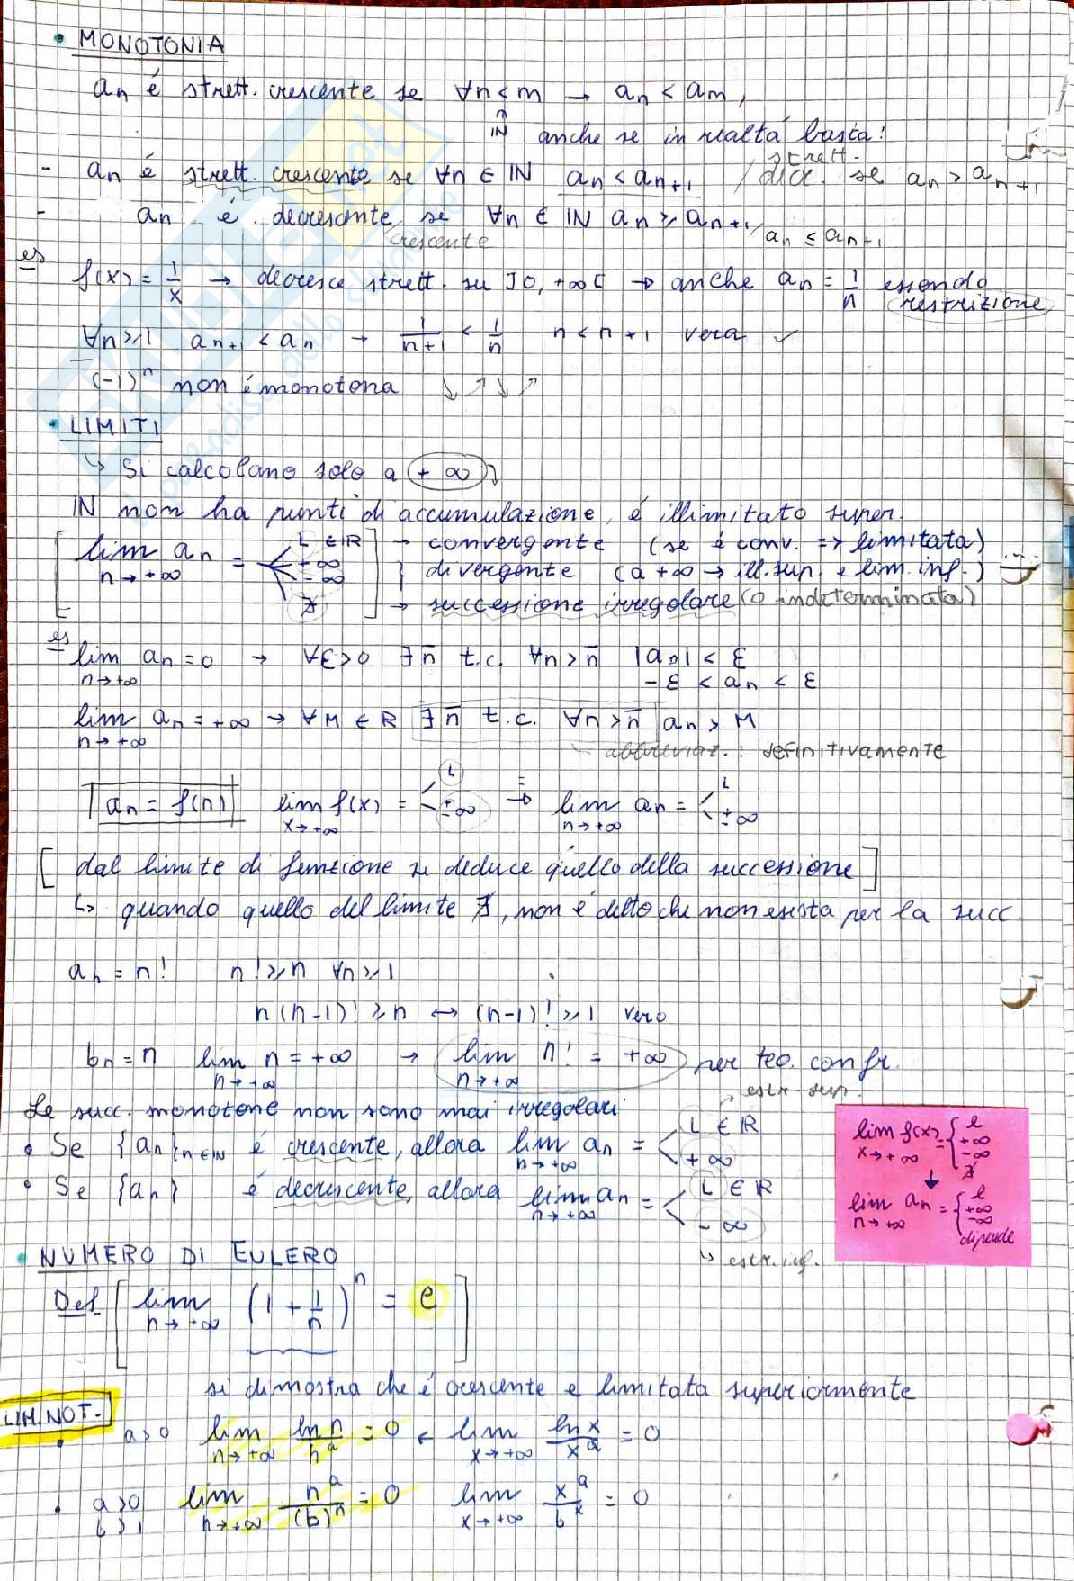 • MONOTONIA
an é strett. crescente se ∀n < m → an < am,
∩
IN anche se in realtà basta:
strett.
- an é strett. crescente se ∀n ∈ IN an < an+1 / decr. se an > an+1
- an é decrescente se ∀n ∈ IN an ≥ an+1 /
crescente an ≤ an+1
es
f(x) = 1/x → decresce strett. su ]0, +∞[ → anche an = 1/n essendo
restrizione
∀n ≥ 1 an+1 < an → 1/(n+1) < 1/n n < n+1 vera ✓
(-1)^n non é monotona ↘ ↗ ↘ ↗
• LIMITI
↳ Si calcolano solo a +∞
IN non ha punti di accumulazione, é illimitato super.
[ lim n→+∞ an = L ∈ IR ] → convergente (se é conv. => limitata)
+∞
-∞ } divergente (a +∞ → ill. sup. e lim. inf.)
∄ → successione irregolare (o indeterminata)
es
lim n→+∞ an = 0 → ∀ε>0 ∃ n̄ t.c. ∀n > n̄ |an| < ε
-ε < an < ε
lim n→+∞ an = +∞ → ∀M ∈ R ∃ n̄ t.c. ∀n > n̄ an > M
abbreviaz.: definitivamente
an = f(n) lim x→+∞ f(x) = L ±∞ → lim n→+∞ an = L ±∞
[ dal limite di funzione si deduce quello della successione ]
↳ quando quello del limite ∄, non é detto che non esista per la succ
an = n! n! ≥ n ∀n ≥ 1
n(n-1)! ≥ n ↔ (n-1)! ≥ 1 vero
bn = n lim n→+∞ n = +∞ → lim n→+∞ n! = +∞ per teo. confr.
estr. sup.
Le succ. monotone non sono mai irregolari
• Se {an}n∈IN é crescente, allora lim n→+∞ an = L ∈ IR
+∞
• Se {an} é decrescente, allora lim n→+∞ an = L ∈ IR
-∞
↳ estr. inf.
lim x→+∞ f(x) = { l +∞ -∞ ∄
↓
lim n→+∞ an = { l +∞ -∞ dipende
• NUMERO DI EULERO
Def [ lim n→+∞ (1 + 1/n)^n = e ]
si dimostra che é crescente e limitata superiormente
LIM. NOT.
• a>0 lim n→+∞ ln n / n^a = 0 ← lim x→+∞ ln x / x^a = 0
• a>0 b>1 lim n→+∞ n^a / (b)^n = 0 lim x→+∞ x^a / b^x = 0